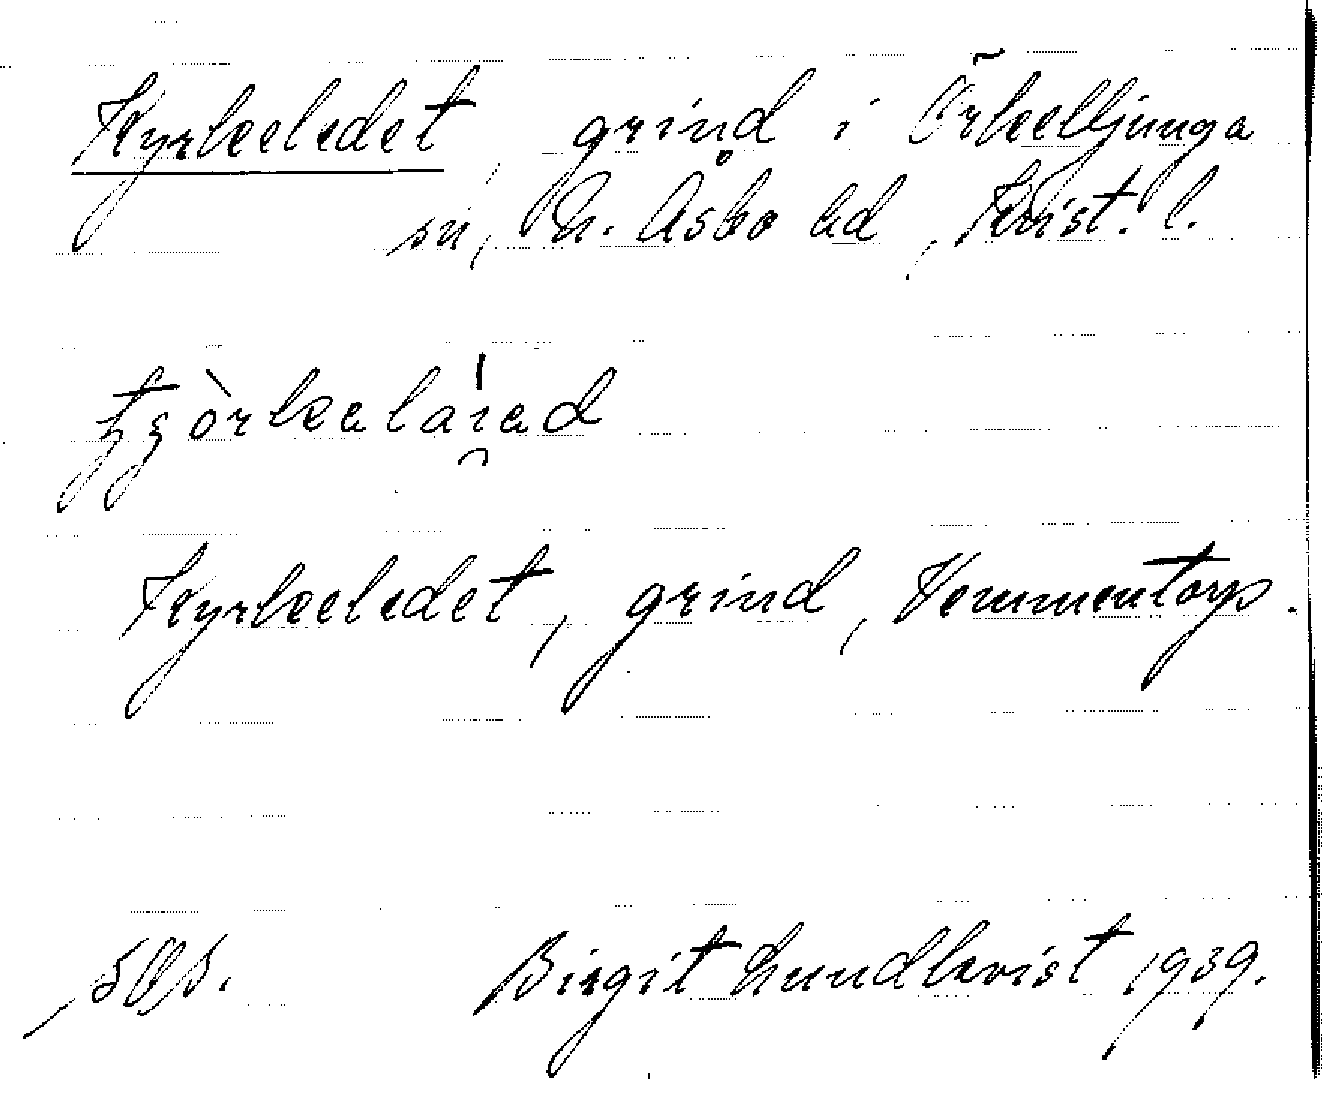 Kyrkeledet, grind i Örkelljunga
sn, N. Åsbo hd, Krist. l.
Kyrkeledet, grind, Vemmentorp.
Birgit Lundkvist 1939.